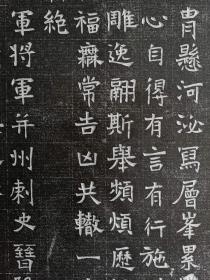 胄懸河泌寫層峯累
心自得有言有行施
雕逸翮斯舉頻煩歷
福霖常吉凶共轍一
絕
軍将軍并州刺史晉